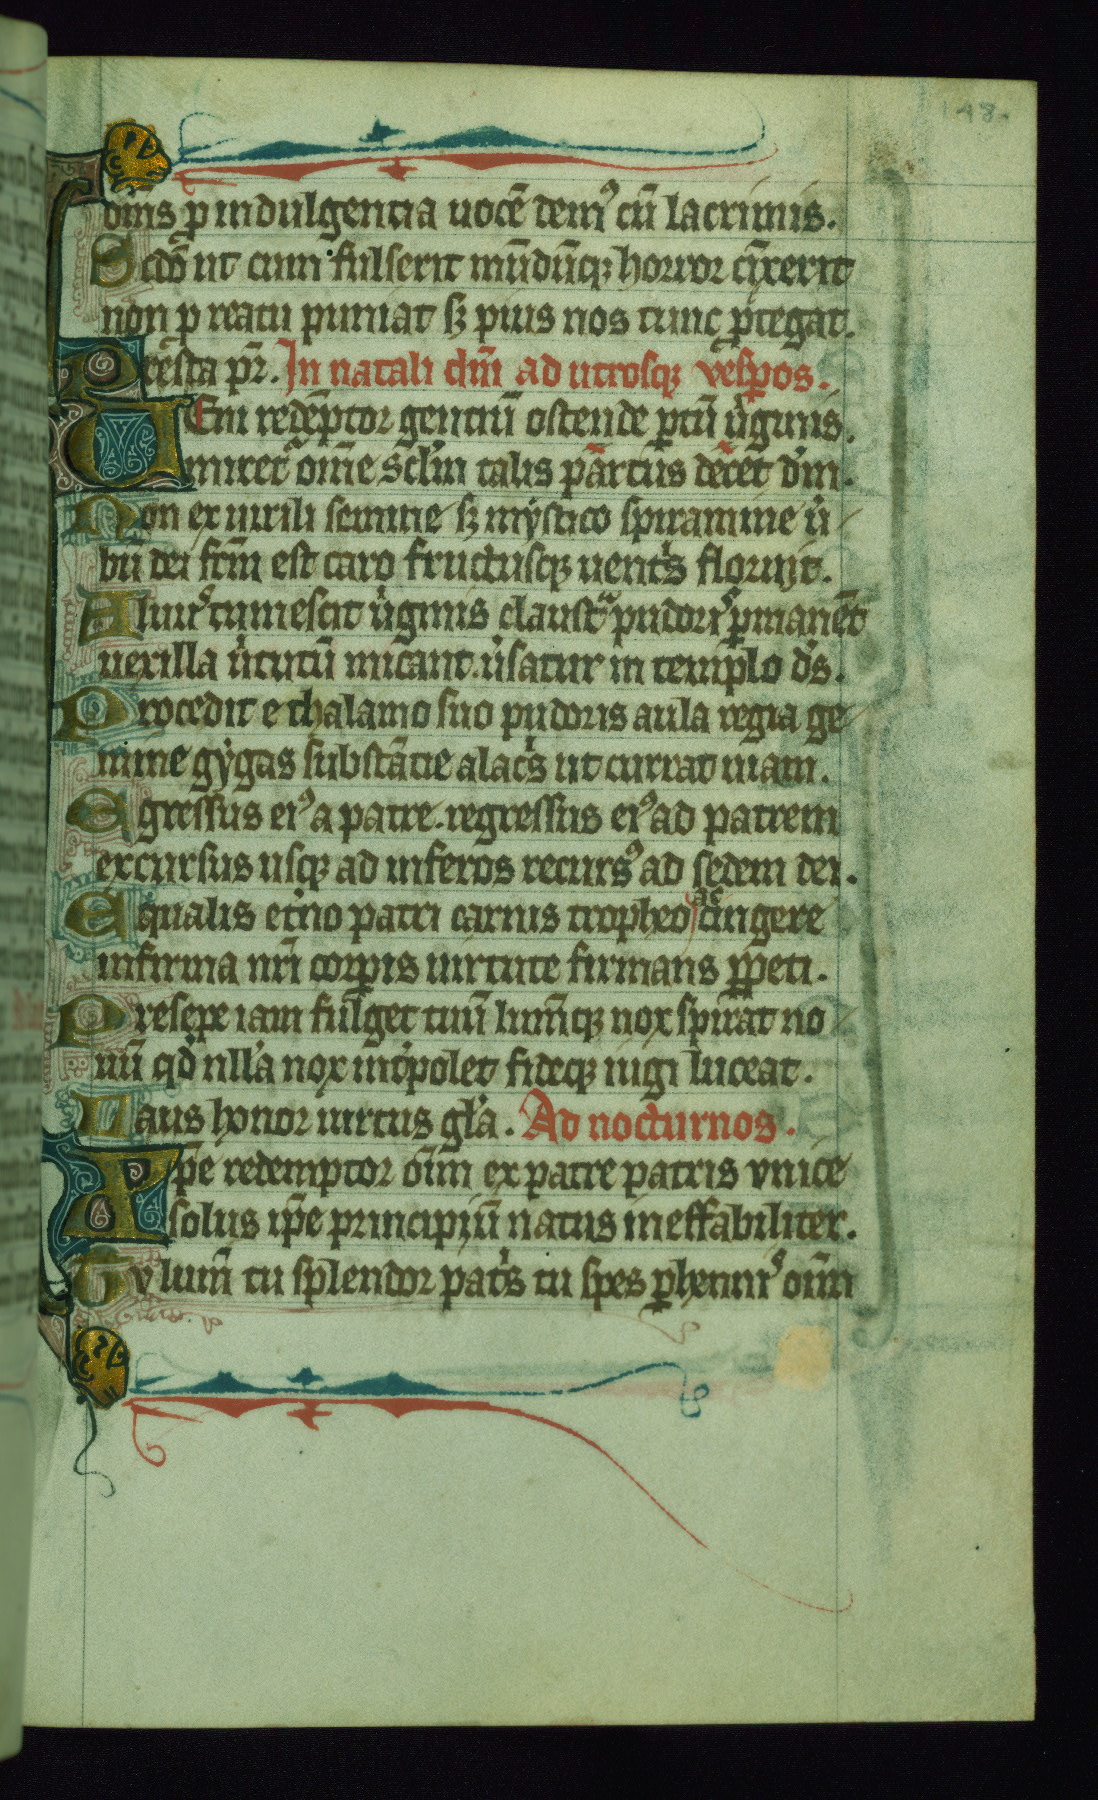 148.
oms̄ ꝑ indulgentia uocē demꝰ cū lacrimis.
Scd̄o ut cum fulserit mūdūqꝫ horror cīxerit
non ꝑ reatu puniat sꝫ pius nos tunc ꝓtegat.
Presta pr̄. In natali dn̄i ad utrosqꝫ vesꝑos.
Veni redēptor gentiū ostende ꝑtū uͥginis.
miretᷣ om̄e scl̄m talis partus decet dm̄.
Non ex uirili semine sꝫ mystico spiramine uͥ
bū dei fcm̄ est caro fructusqꝫ uentͥs floruit.
Aluuꝰ tumescit uͥginis claustͣ pudorꝭ ꝑmanēt
uexilla uͥtutū micant. uͥsatur in templo dꝰs.
Procedit e thalamo suo pudoris aula regia ge
mine gygas substācie alacͥs ut currat uiam.
Egressus eiꝰ a patre. regressus eiꝰ ad patrem
excursus usqꝫ ad inferos recursꝰ ad sedem dei.
Equalis et̓no patri carnis tropheo accingere
infirma nr̄i corꝑis uirtute firmans ꝑpeti.
Presepe iam fulget tuū lum̄qꝫ nox spirat no
uū qd̓ nll̓a nox int̓polet fideqꝫ iugi luceat.
Laus honor uirtus gl̓a. Ad nocturnos.
Xp̄e redemptor oīm ex patre patris vnice
solus ip̄e principiū natus ineffabiliter.
Tv lum̄ tu splendor patͥs tu spes ꝑhennꝭ oīm